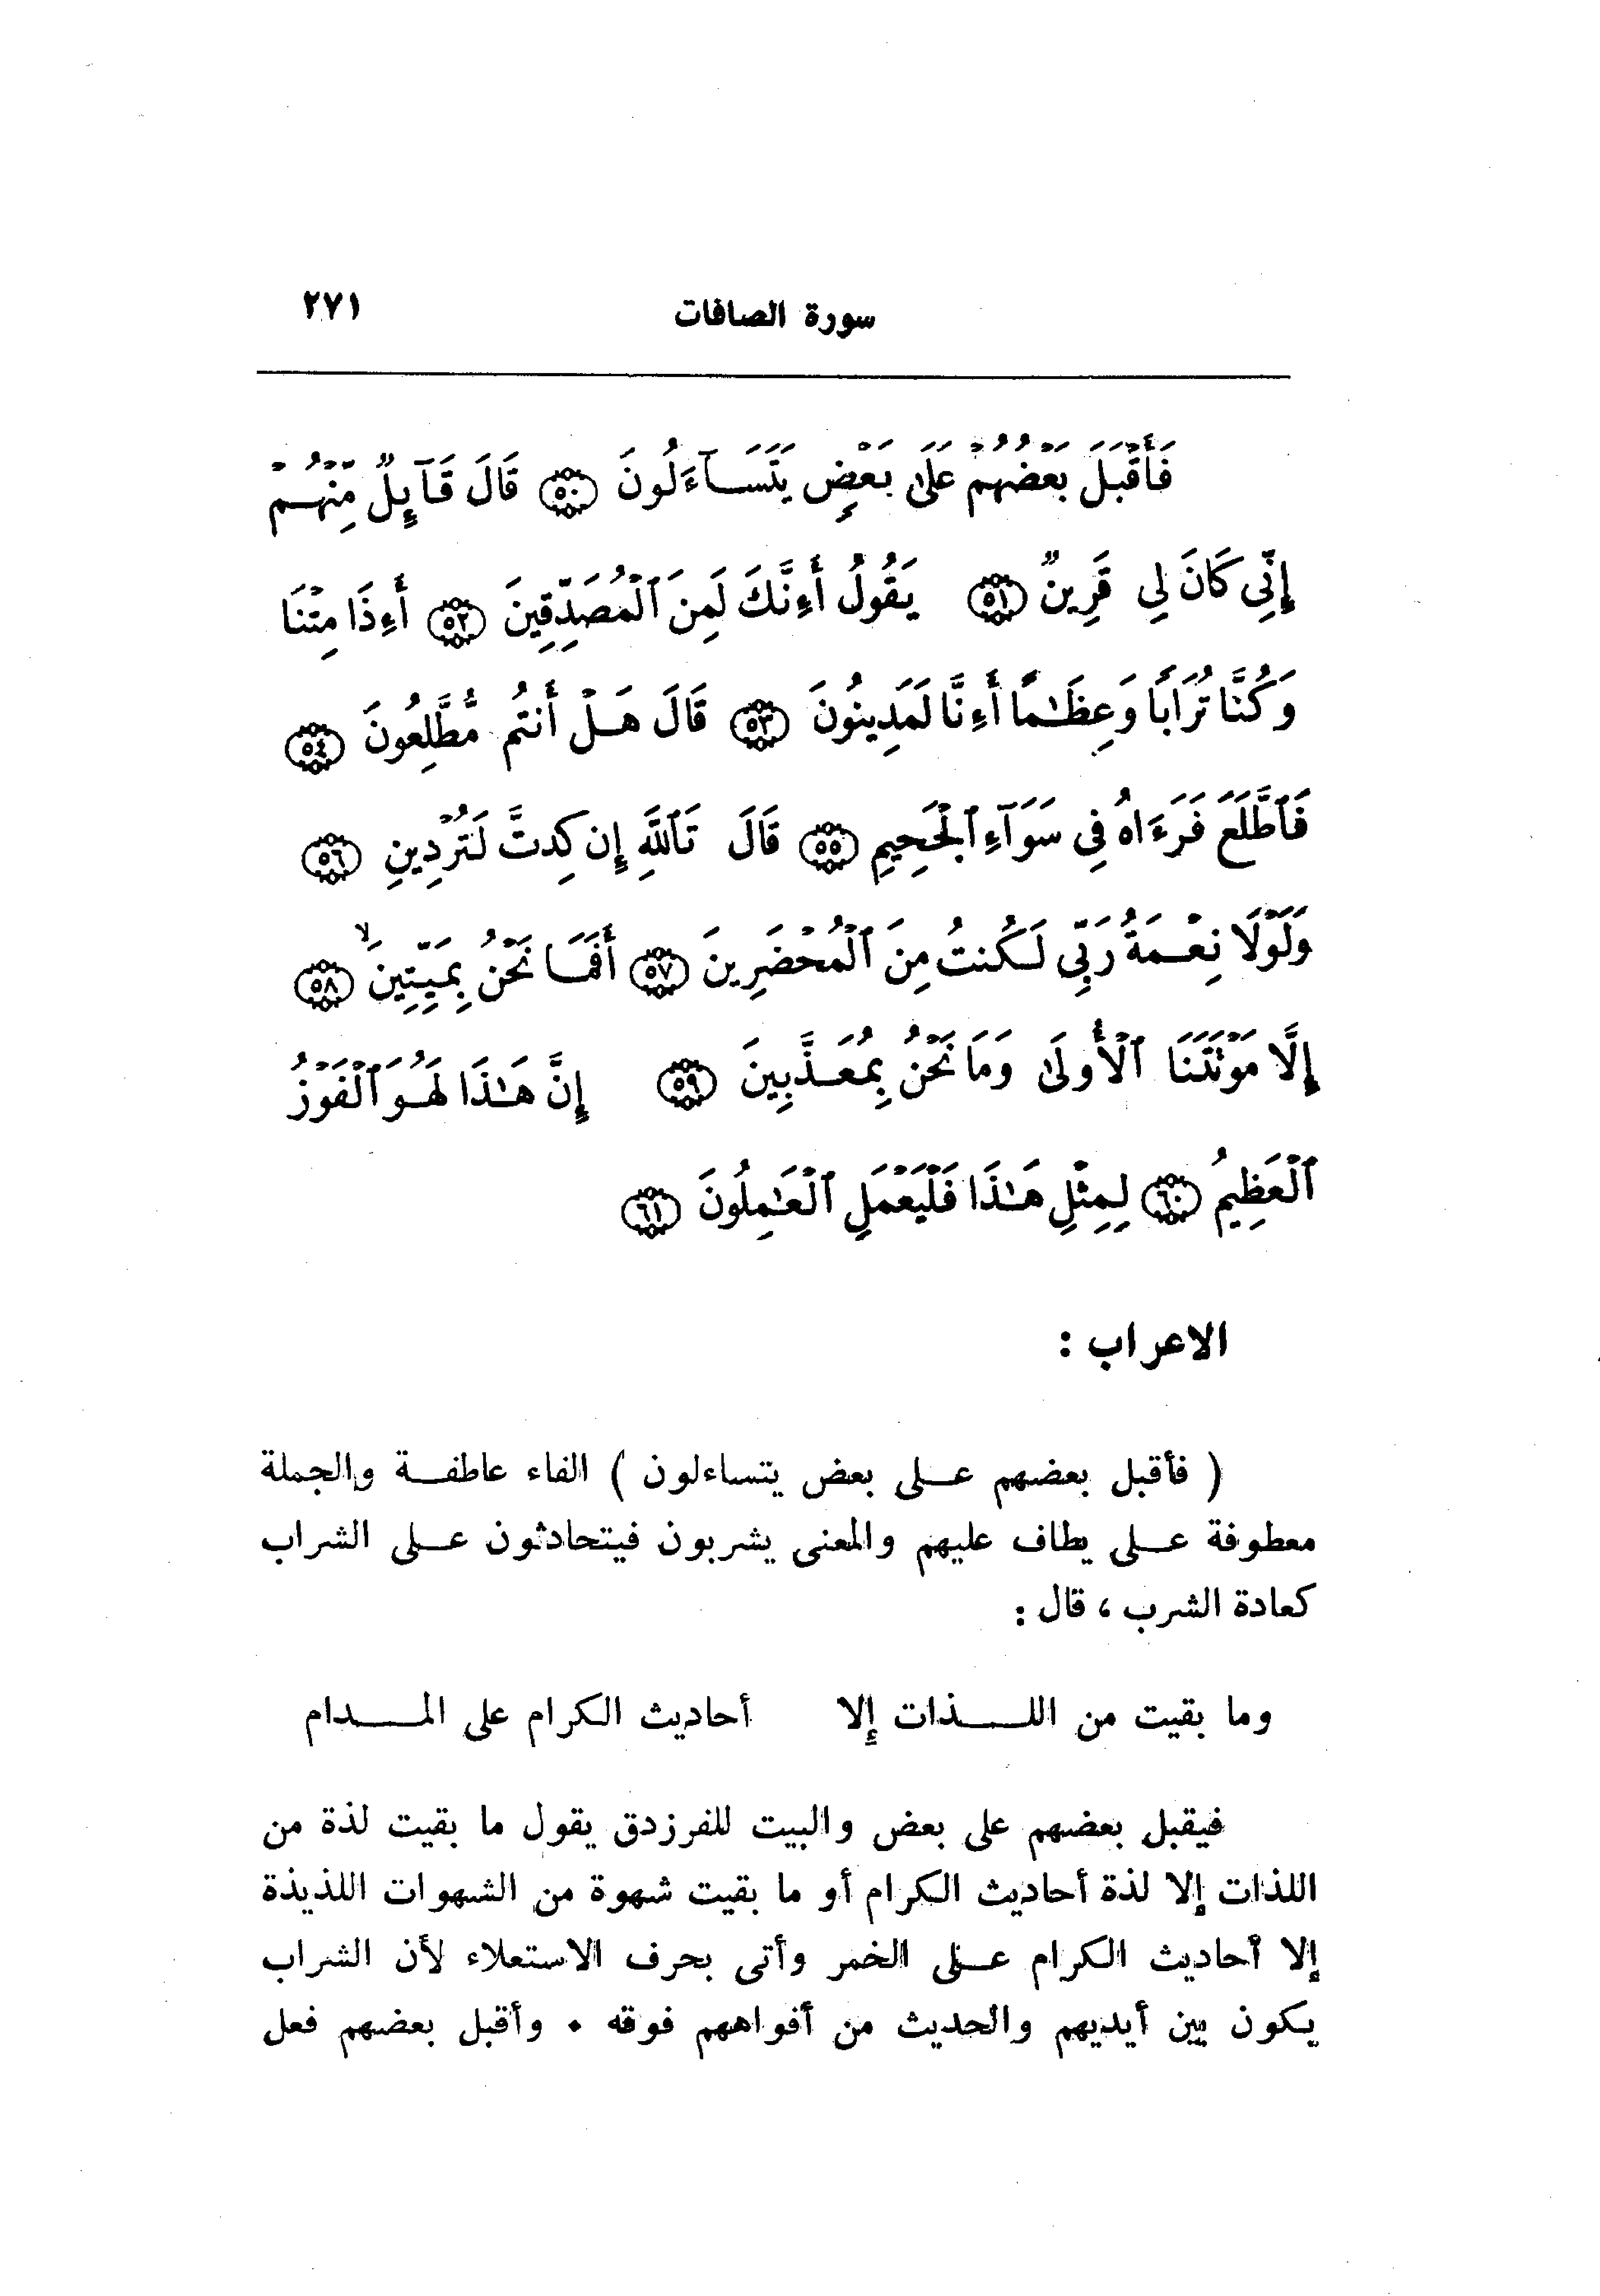 سورة الصافات ٢٧١
فَأَقْبَلَ بَعْضُهُمْ عَلَىٰ بَعْضٍ يَتَسَآءَلُونَ ٥٠ قَالَ قَآئِلٌ مِّنْهُمْ
إِنِّى كَانَ لِى قَرِينٌ ٥١ يَقُولُ أَءِنَّكَ لَمِنَ ٱلْمُصَدِّقِينَ ٥٢ أَءِذَا مِتْنَا
وَكُنَّا تُرَابًا وَعِظَٰمًا أَءِنَّا لَمَدِينُونَ ٥٣ قَالَ هَلْ أَنتُم مُّطَّلِعُونَ ٥٤
فَٱطَّلَعَ فَرَءَاهُ فِى سَوَآءِ ٱلْجَحِيمِ ٥٥ قَالَ تَٱللَّهِ إِن كِدتَّ لَتُرْدِينِ ٥٦
وَلَوْلَا نِعْمَةُ رَبِّى لَكُنتُ مِنَ ٱلْمُحْضَرِينَ ٥٧ أَفَمَا نَحْنُ بِمَيِّتِينَ ۙ ٥٨
إِلَّا مَوْتَتَنَا ٱلْأُولَىٰ وَمَا نَحْنُ بِمُعَذَّبِينَ ٥٩ إِنَّ هَٰذَا لَهُوَ ٱلْفَوْزُ
ٱلْعَظِيمُ ٦٠ لِمِثْلِ هَٰذَا فَلْيَعْمَلِ ٱلْعَٰمِلُونَ ٦١
الاعراب :
( فأقبل بعضهم على بعض يتساءلون ) الفاء عاطفة والجملة
معطوفة على يطاف عليهم والمعنى يشربون فيتحادثون على الشراب
كعادة الشرب ، قال :
وما بقيت من اللذات إلا أحاديث الكرام على المدام
فيقبل بعضهم على بعض والبيت للفرزدق يقول ما بقيت لذة من
اللذات إلا لذة أحاديث الكرام أو ما بقيت شهوة من الشهوات اللذيذة
إلا أحاديث الكرام على الخمر وأتى بحرف الاستعلاء لأن الشراب
يكون بين أيديهم والحديث من أفواههم فوقه ٠ وأقبل بعضهم فعل